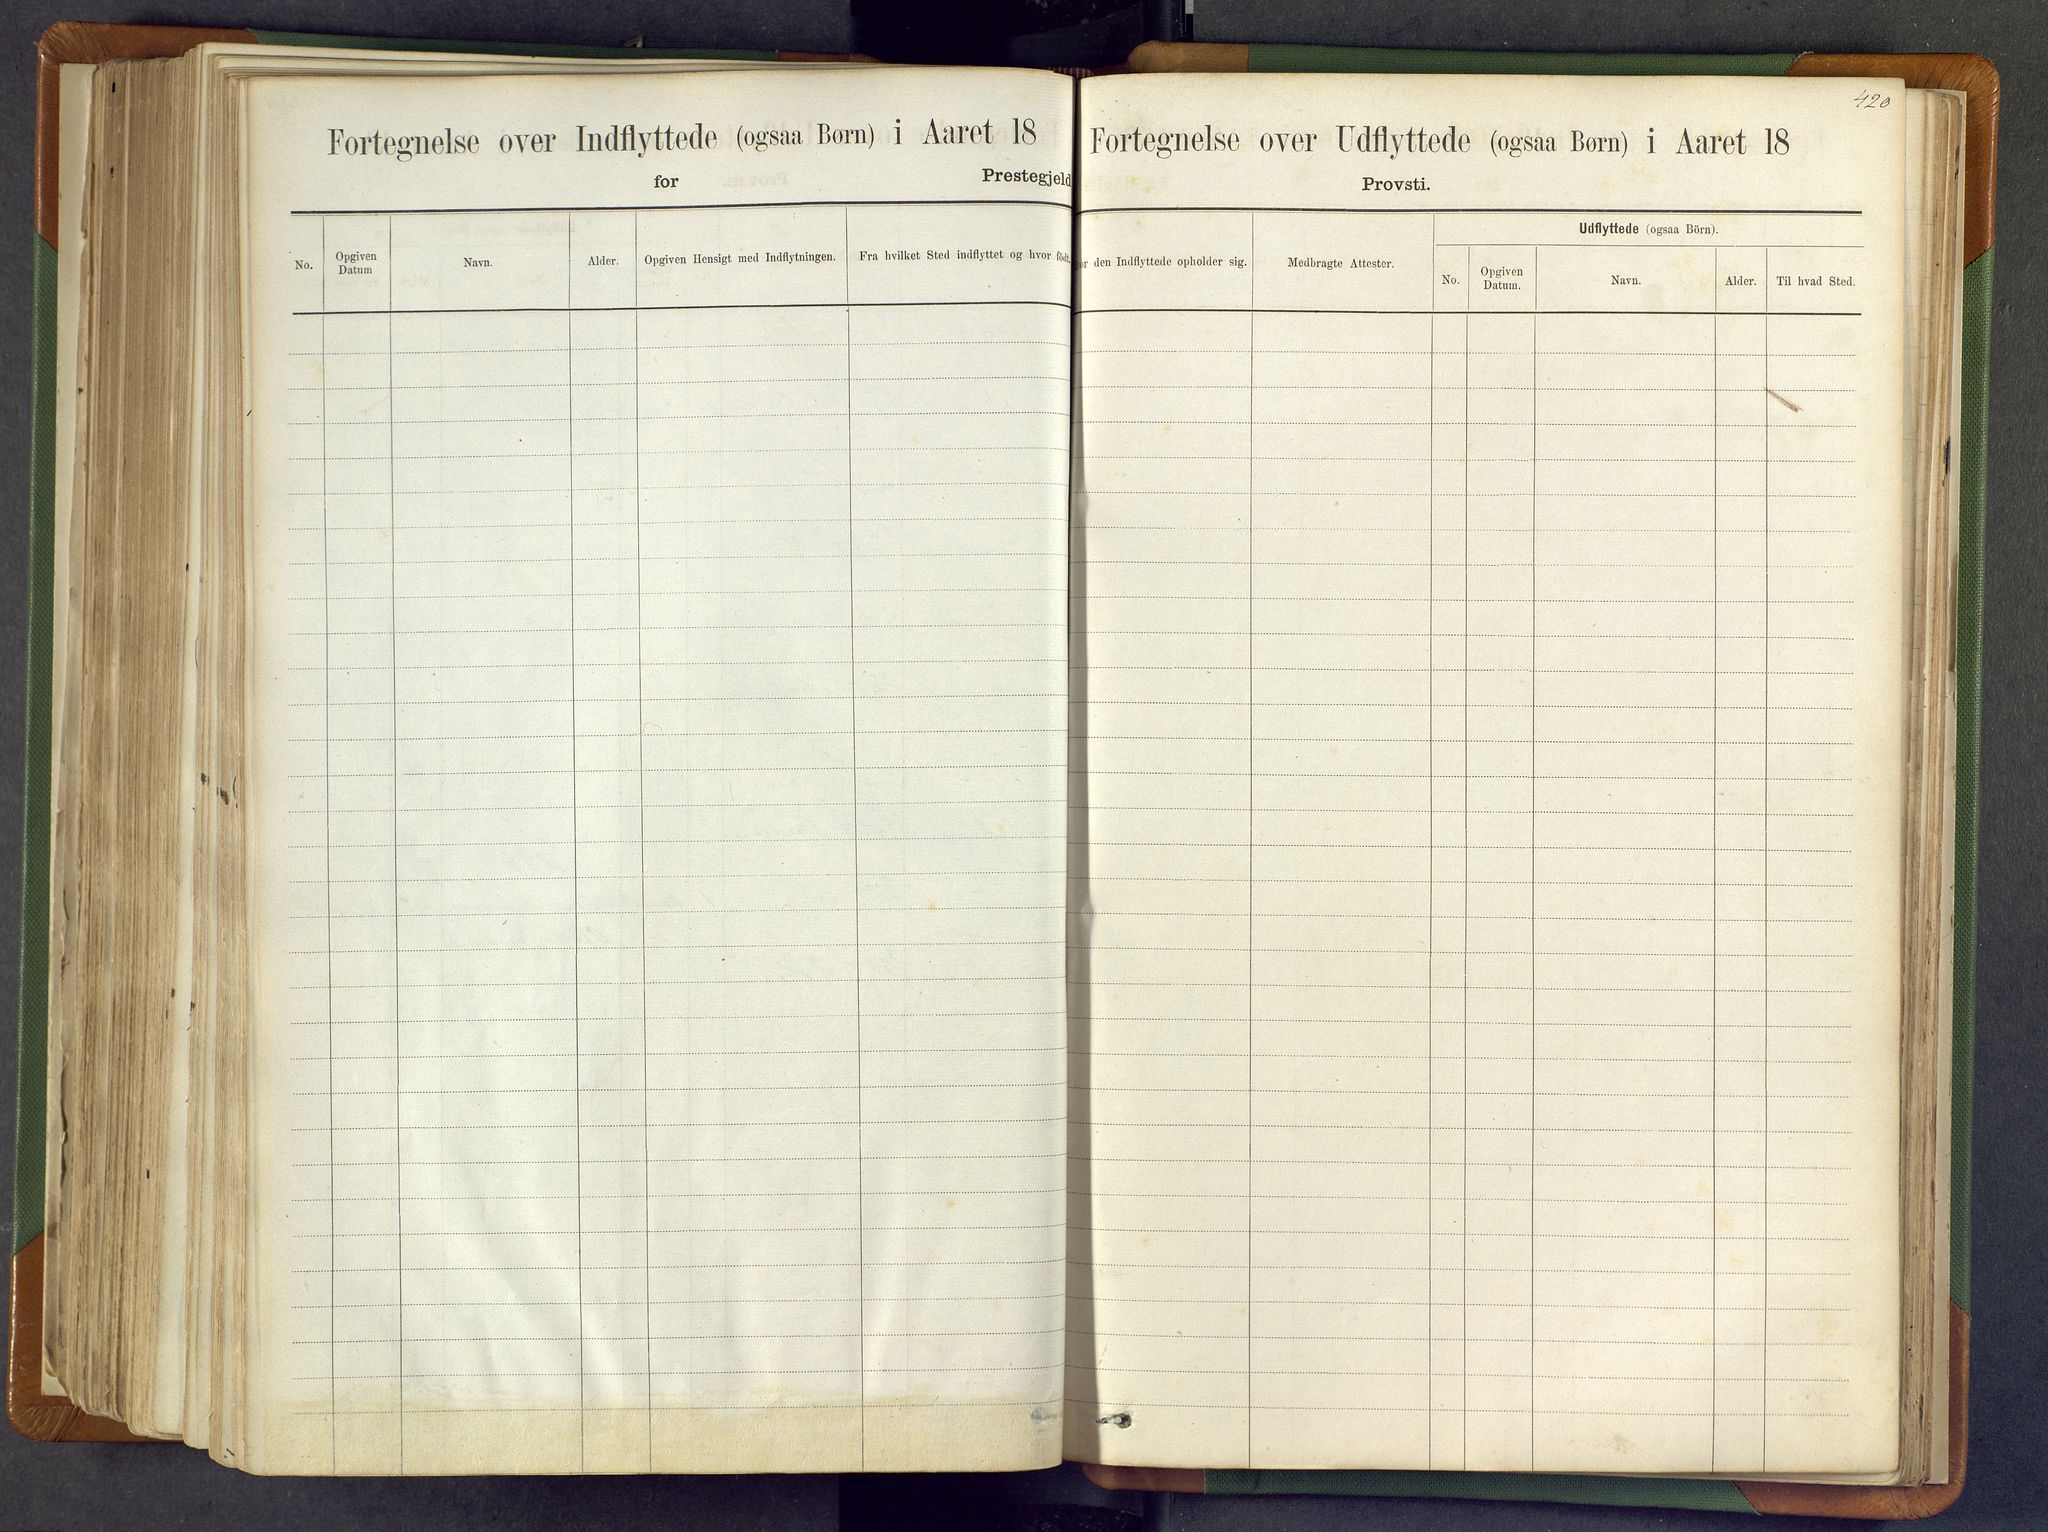 Fortegnelse over Indflyttede (ogsaa Børn) i Aaret 18
for Prestegjeld
No.
Opgiven Datum
Navn.
Alder.
Opgiven Hensigt med Indflytningen.
Fra hvilket Sted indflyttet og hvor födt.
420
Fortegnelse over Udflyttede (ogsaa Børn) i Aaret 18
Provsti.
den Indflyttede opholder sig.
Medbragte Attester.
Udflyttede (ogsaa Börn).
No.
Opgiven Datum.
Navn.
Alder.
Til hvad Sted.